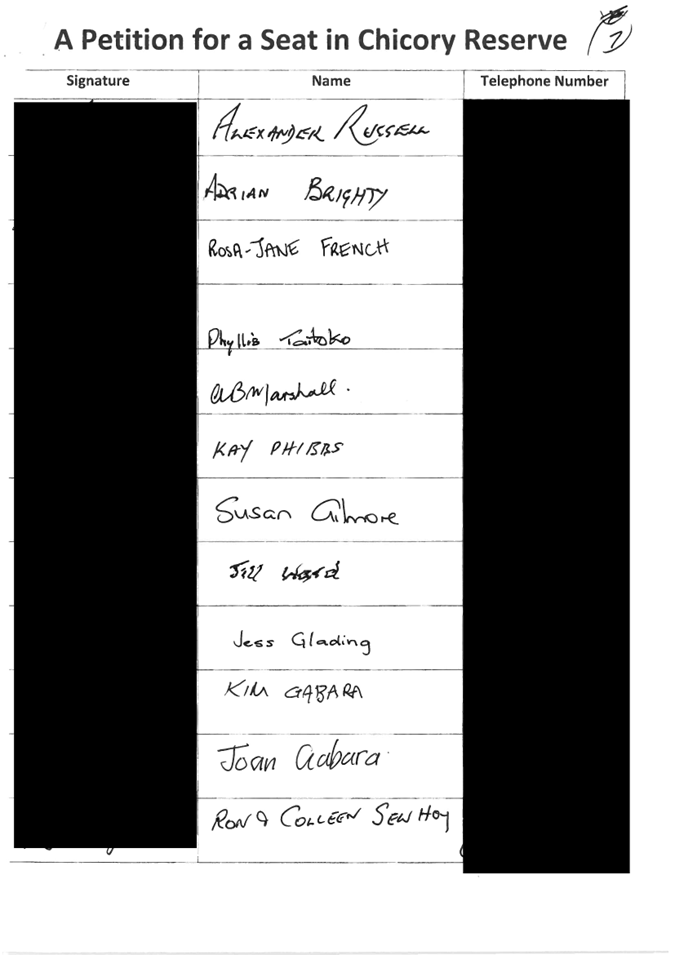 A Petition for a Seat in Chicory Reserve
7
Signature Name Telephone Number
ALEXANDER RUSSELL
ADRIAN BRIGHTY
ROSA-JANE FRENCH
Phyllis Taitoko
Marshall.
KAY PHIBBS
Susan Gilmore
Jill Ward
Jess Glading
KIM GABARA
Joan Gabara
RON & COLLEEN SEW HOY